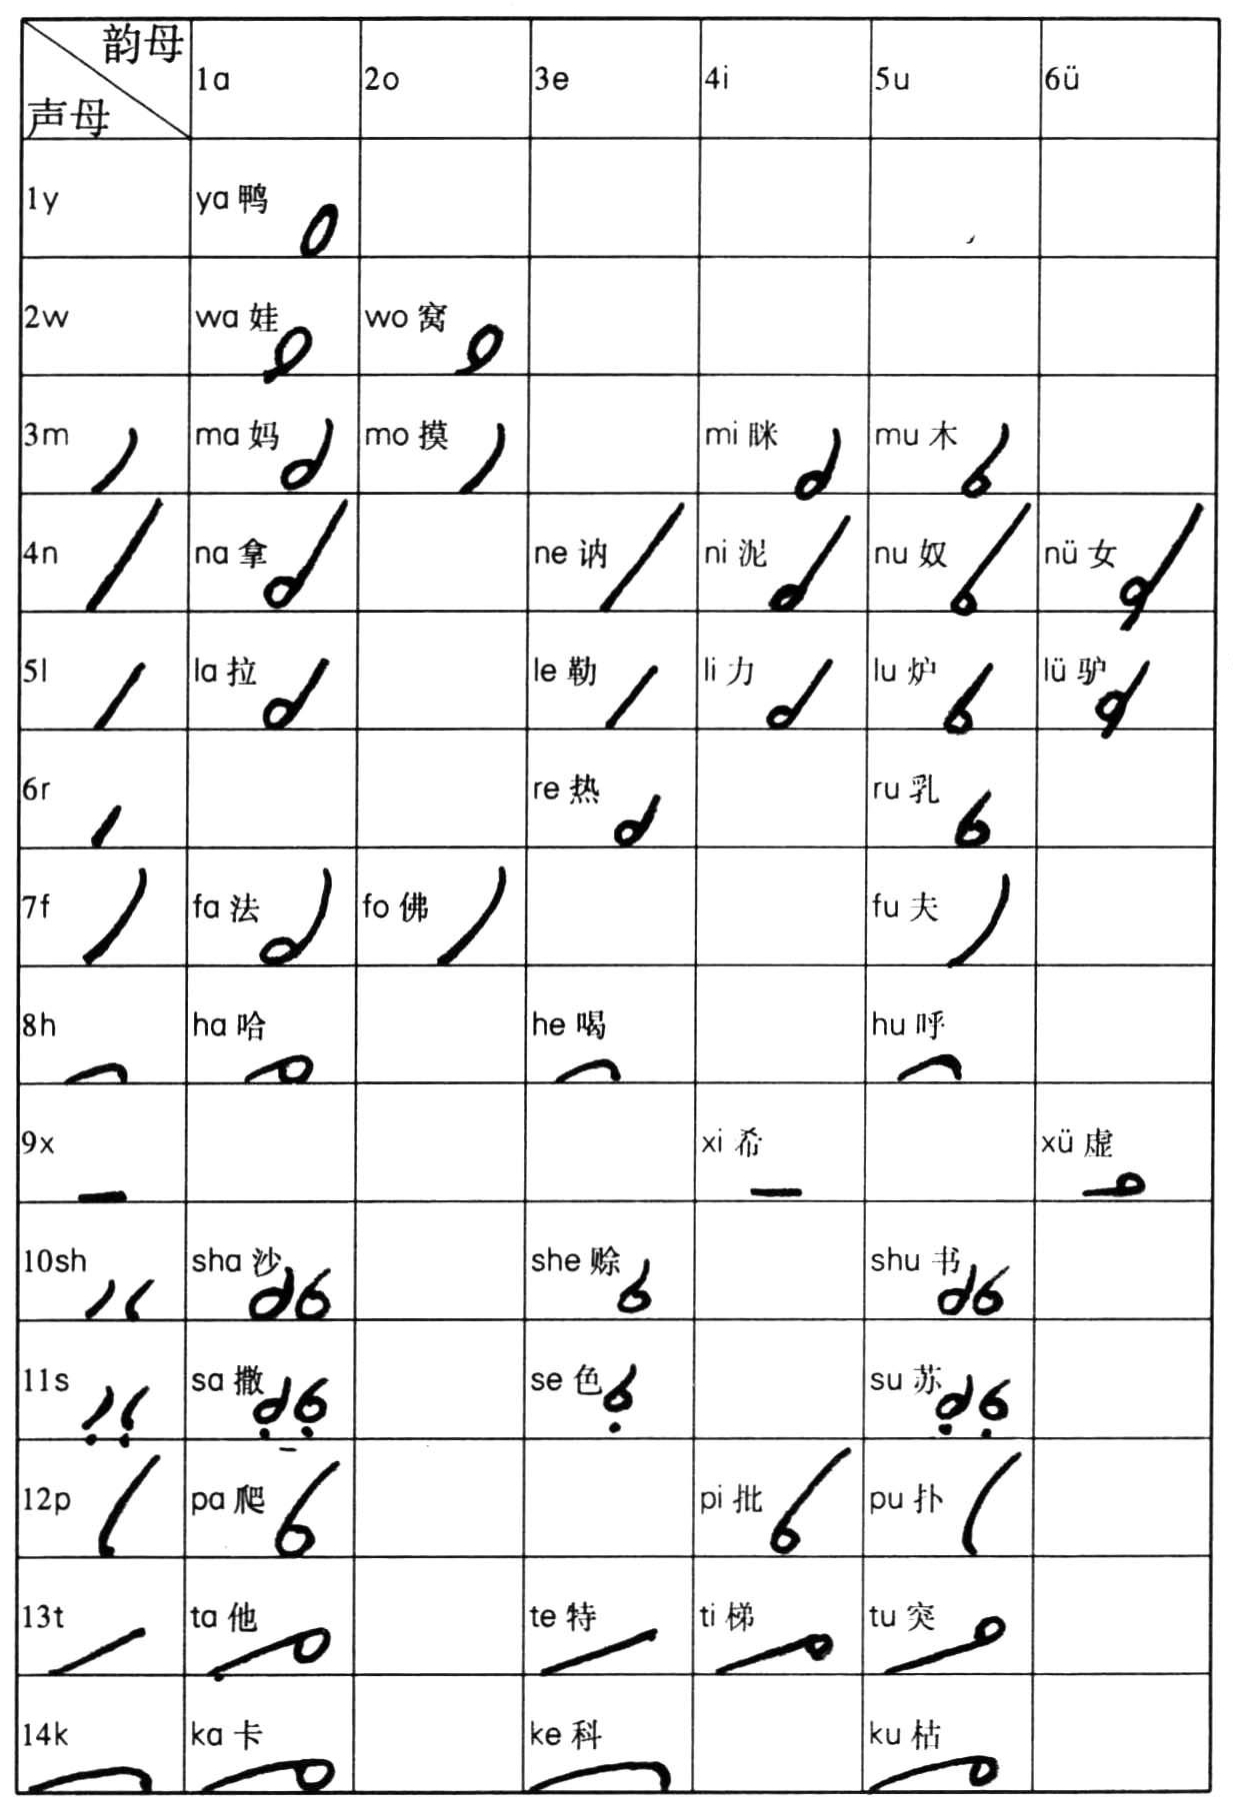 韵母
声母 1a 2o 3e 4i 5u 6ü
1y ya 鸭
2w wa 娃 wo 窝
3m ma 妈 mo 摸 mi 眯 mu 木
4n na 拿 ne 讷 ni 泥 nu 奴 nü 女
5l la 拉 le 勒 li 力 lu 炉 lü 驴
6r re 热 ru 乳
7f fa 法 fo 佛 fu 夫
8h ha 哈 he 喝 hu 呼
9x xi 希 xü 虚
10sh sha 沙 she 赊 shu 书
11s sa 撒 se 色 su 苏
12p pa 爬 pi 批 pu 扑
13t ta 他 te 特 ti 梯 tu 突
14k ka 卡 ke 科 ku 枯